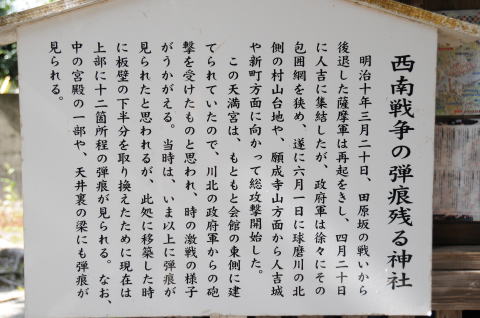 西南戦争の弾痕残る神社
明治十年三月二十日、田原坂の戦いから
後退した薩摩軍は再起をきし、四月二十日
に人吉に集結したが、政府軍は徐々にその
包囲網を狭め、遂に六月一日に球磨川の北
側の村山台地や、願成寺山方面から人吉城
や新町方面に向かって総攻撃開始した。
この天満宮は、もともと会館の東側に建
てられていたので、川北の政府軍からの砲
撃を受けたものと思われ、時の激戦の様子
がうかがえる。当時は、いま以上に弾痕が
見られたと思われるが、此処に移築した時
に板壁の下半分を取り換えたために現在は
上部に十二箇所程の弾痕が見られる。なお、
中の宮殿の一部や、天井裏の梁にも弾痕が
見られる。